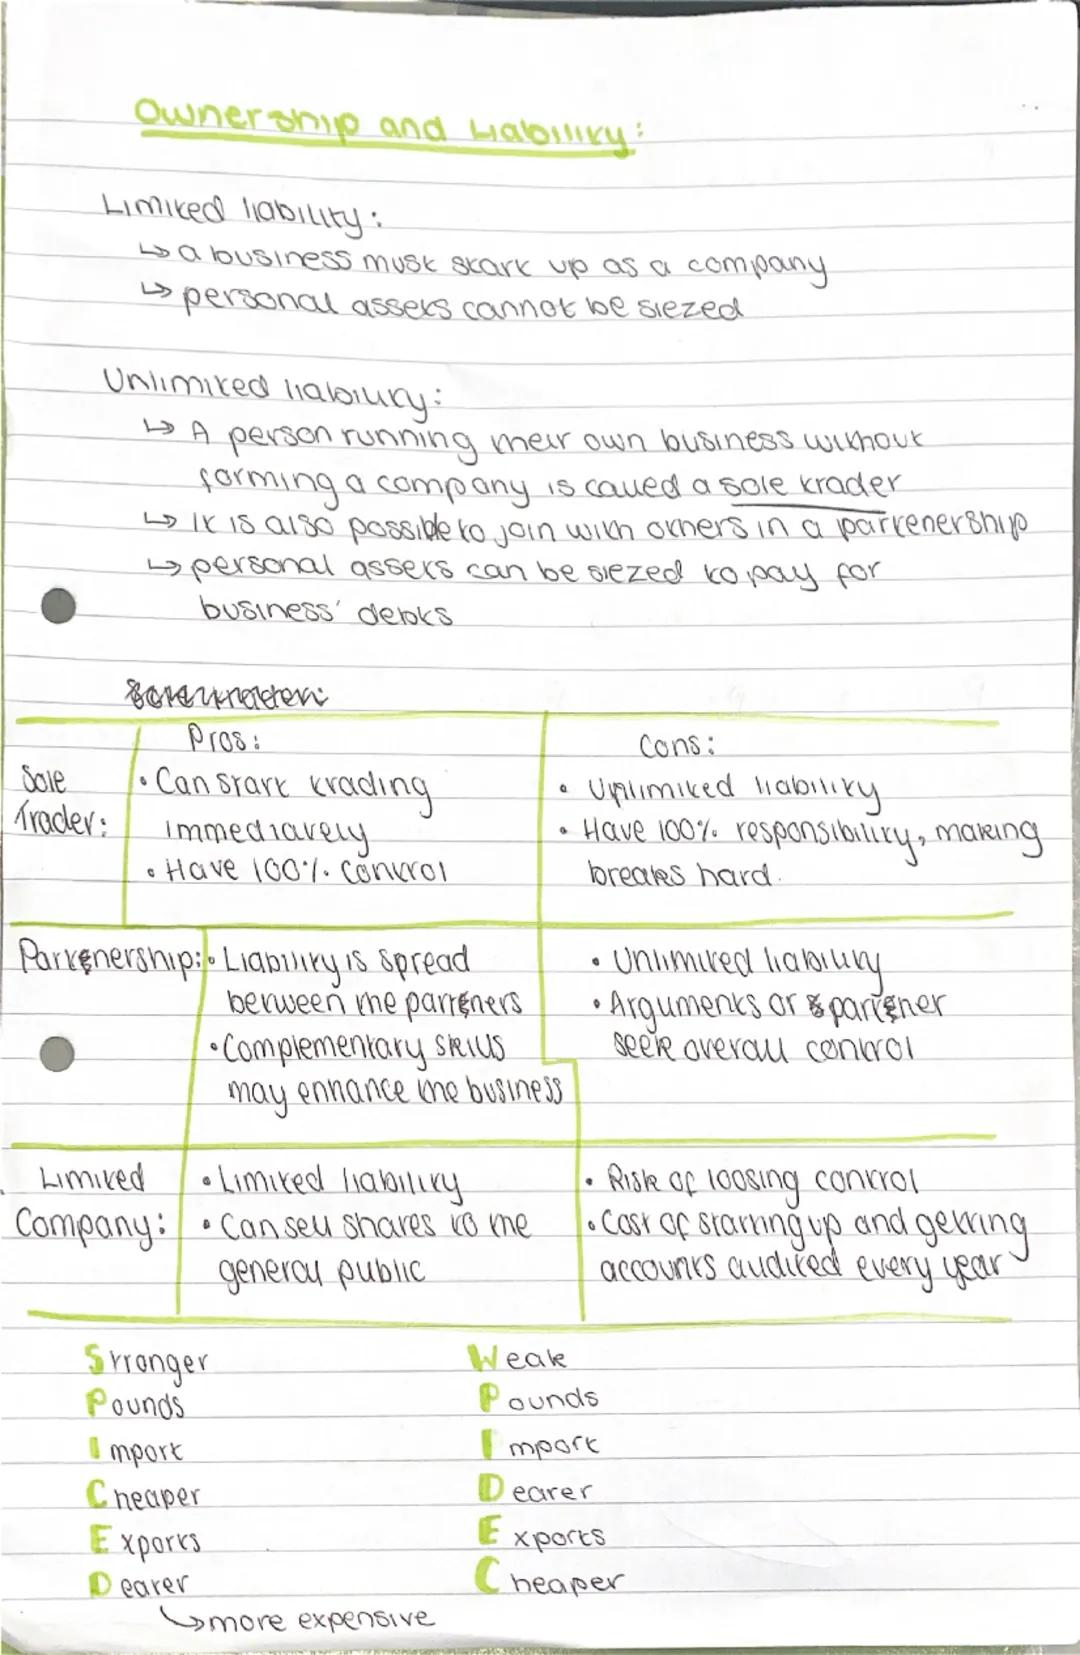 Ownership and Liability:
Limited liability:
↳ a business must start up as a company
↳ personal assets cannot be siezed
Unlimited liability:
↳ A person running their own business without
forming a company is called a sole trader
↳ It is also possible to join with others in a partenership
↳ personal assets can be siezed to pay for
business' debts
Pros:
Cons:
Sole
Trader:
• Can start trading
immediately
• Have 100% control
• Unlimited liability
• Have 100% responsibility, making
breaks hard.
Partenership:
• Liability is spread
between the parteners
• Complementary skills
may enhance the business
• Unlimited liability
• Arguments or partener
seek overall control
Limited
Company:
• Limited liability
• Can sell shares to the
general public
• Risk of loosing control
• Cost of starting up and getting
accounts audited every year
Stronger
Pounds
Import
Cheaper
Exports
Dearer
↳ more expensive
Weak
Pounds
Import
Dearer
Exports
Cheaper